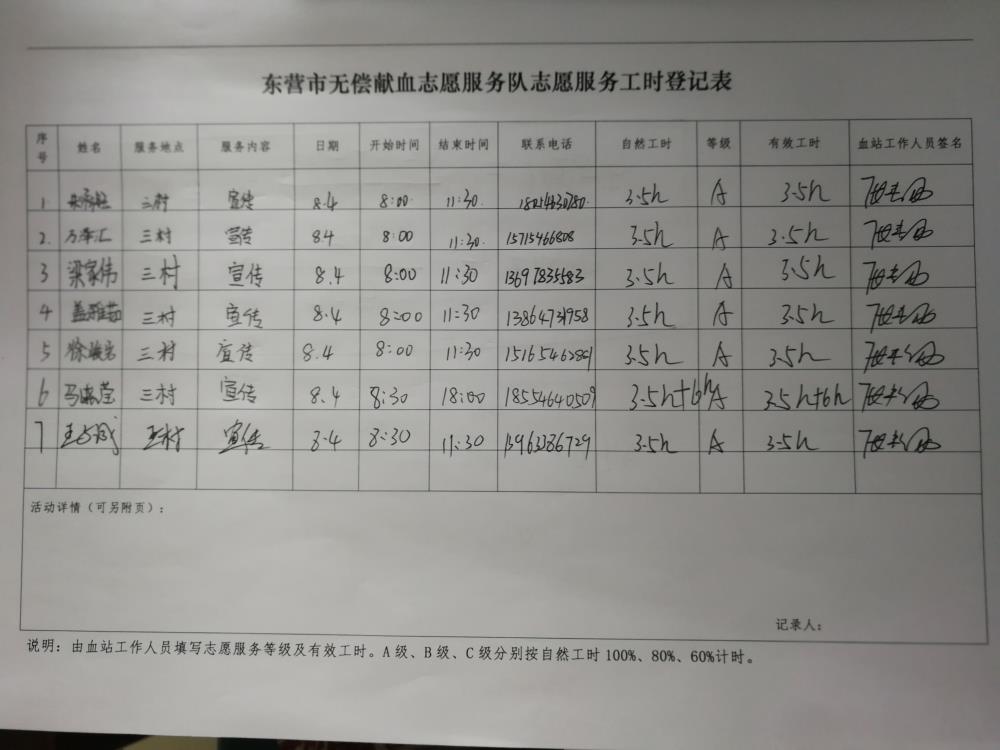 东营市无偿献血志愿服务队志愿服务工时登记表
序号 姓名 服务地点 服务内容 日期 开始时间 结束时间 联系电话 自然工时 等级 有效工时 血站工作人员签名
1 三村 宣传 8.4 8:00 11:30 3.5h A 3.5h
2. 万泽汇 三村 宣传 8.4 8:00 11:30. 15715466808 3.5h A 3.5h
3 梁家伟 三村 宣传 8.4 8:00 11:30 13697835583 3.5h A 3.5h
4 盖雅茹 三村 宣传 8.4 8:00 11:30 13864731958 3.5h A 3.5h
5 三村 宣传 8.4 8:00 11:30 15165462891 3.5h A 3.5h
6 三村 宣传 8.4 8:30 18:00 18554640509 3.5h+6h A 3.5h+6h
7 宣传 8.4 8:30 11:30 13963386729 3.5h A 3.5h
活动详情（可另附页）：
记录人：
说明：由血站工作人员填写志愿服务等级及有效工时。A级、B级、C级分别按自然工时100%、80%、60%计时。